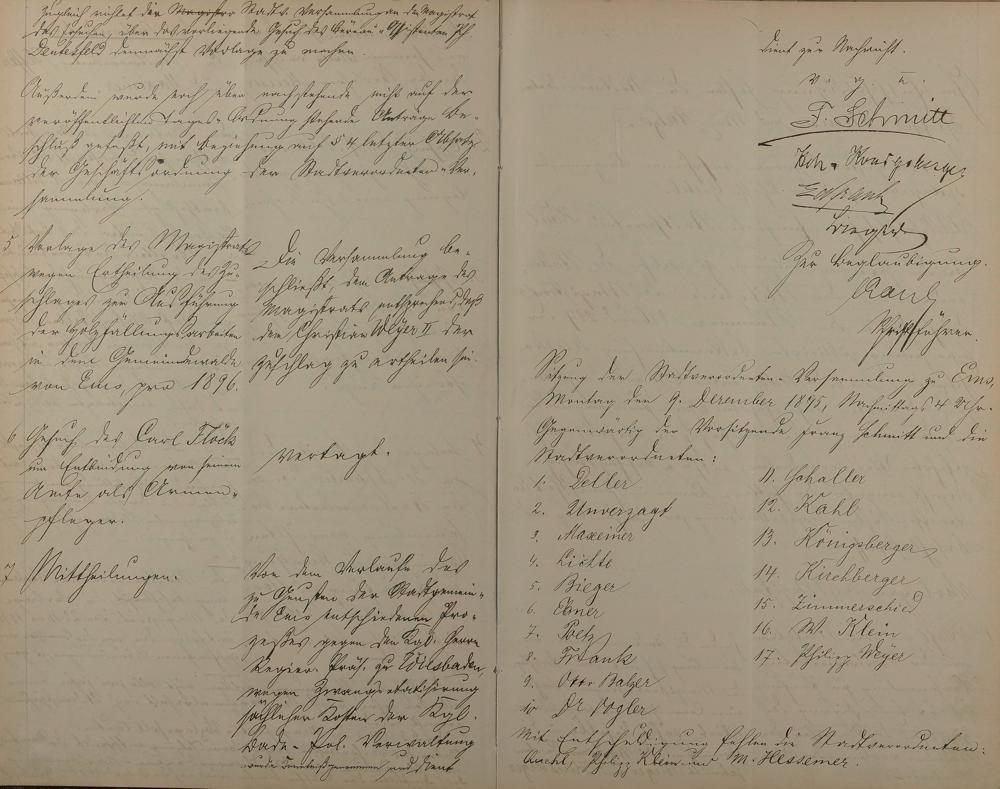 Zugleich richtet die Stadtv. Versammlung an den Magistrat
das Ersuchen, über das vorliegende Gesuch des Assistenten Ph
demnächst Vorlage zu machen.
Außerdem wurde noch über nachstehende nicht auf der
veröffentlichten Tages-Ordnung stehende Anträge Be-
schluß gefaßt, mit Beziehung auf § 4 letzter Absatz
der Geschäftsordnung der Stadtverordneten-Ver-
sammlung.
5 Vorlage des Magistrats
wegen Ertheilung des Zu-
schlages zur Ausführung
der Holzfällungsarbeiten
in dem Gemeindewalde
von Ems, pro 1896.
Die Versammlung be-
schließt, dem Antrage des
Magistrats entsprechend, daß
dem Christian Weyer II der
Zuschlag zu ertheilen sei.
6 Gesuch des Carl Flöck
um Entbindung von seinem
Amte als Armen-
pfleger.
Vertagt.
7 Mittheilungen.
Von dem Verlaufe des
zu Gunsten der Stadtgemein-
de Ems entschiedenen Pro-
zeßes gegen den Kgl. Herrn
Regier. Präs. zu Wiesbaden,
wegen Zwangsetatisirung
sächlicher Kosten der Kgl.
Bade-Pol. Verwaltung
wurde Kenntniß genommen und dient
dient zur Nachricht.
v. g. u.
F. Schmitt
Hch. Königsberger
Ed Frank
Bieger
Zur Beglaubigung.
Kaul
Schriftführer.
Sitzung der Stadtverordneten-Versammlung zu Ems,
Montag den 9. Dezember 1895, Nachmittags 4 Uhr.
Gegenwärtig der Vorsitzende Franz Schmitt und die
Stadtverordneten:
1. Deller
2. Unverzagt
3. Maxeiner
4. Lichte
5. Bieger
6. Ebner
7. Betz
8. Frank
9. Otto Balzer
10 Dr. Vogler
11. Schaller
12. Kahl
13. Königsberger
14. Kirchberger
15. Zimmerschied
16. W. Klein
17. Philipp Weyer
Mit Entschuldigung fehlen die Stadtverordneten:
Philipp Klein und M. Hessemer.